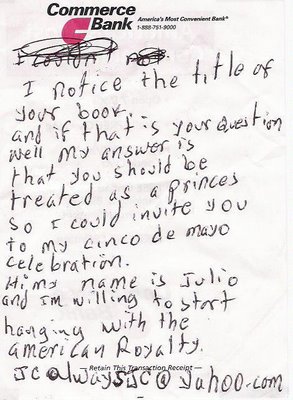 Commerce
Bank
America's Most Convenient Bank®
1-888-751-9000
I notice the title of
your book,
and if that is your question
well my answer is
that you should be
treated as a princes
so I could invite you
to my cinco de mayo
celebration.
Hi my name is Julio
and I'm willing to start
hanging with the
american Royalty.
— Retain This Transaction Receipt —
JcalwaysJc@yahoo.com